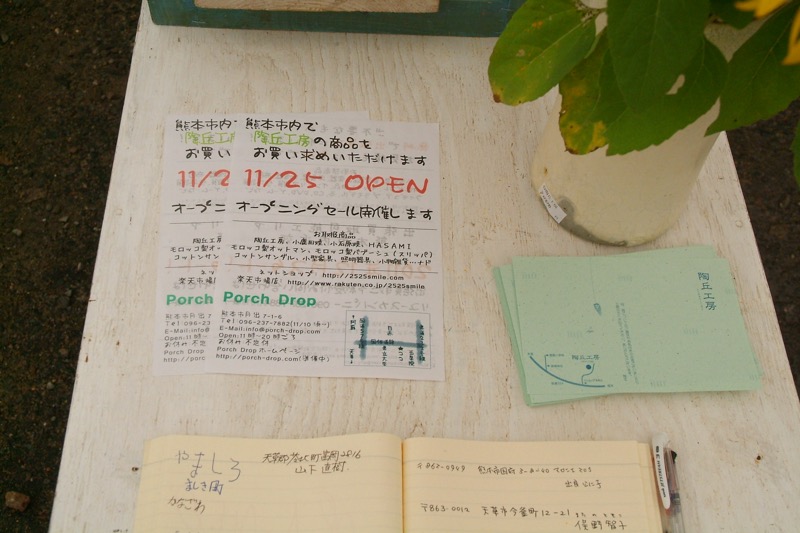 熊本市内で
陶丘工房の商品を
お買い求めいただけます
11/25 OPEN
オープニングセール開催します
お取扱商品
陶丘工房、小鹿田焼、小石原焼、HASAMI
モロッコ製オットマン、モロッコ製バブーシュ(スリッパ)
コットンサンダル、小型家具、照明器具、小物雑貨…ナド
ネットショップ http://2525smile.com
楽天市場店 http://www.rakuten.co.jp/2525smile
Porch Drop
熊本市月出7-1-6
Tel 096-237-7682(11/10頃〜)
E-Mail:info@porch-drop.com
Open:11時~20時ごろ
お休み 不定休
Porch Dropホームページ
http://porch-drop.com(準備中)
熊本市内
陶丘工房
お買い
11/2
オープニ
陶丘工房
モロッコ製オ
コットンサン
ネッ
楽天市場店
Porch
熊本市月出7
Tel 096-23
E-Mail:info
Open:11時~
お休み 不定
Porch Drop
http://porc
陶丘工房
陶丘工房
やましろ
ましき町
かなざわ
山下直樹
〒862-0949
〒863-0012 天草市今釜町12-21